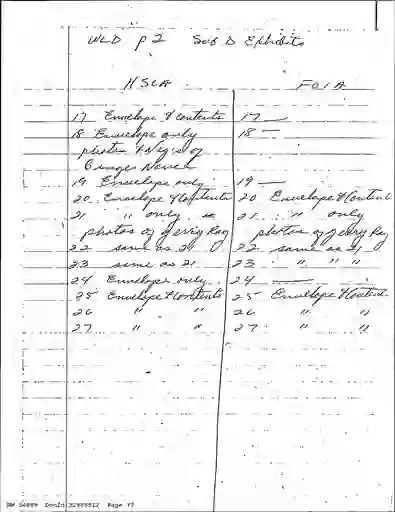 WLD p2 Sub D Exhibits
HSCA FOIA
17 Envelope & Contents 17 —
18 Envelope only 18 —
photos & Neg's of
19 Envelope only 19 —
20 Envelope & Contents 20 Envelope & Content
21 " only 21 " only
photos of Jerry Ray photos of Jerry Ray
22 same as 21 22 same as 21
23 same as 21 23 " " "
24 Envelope only 24 —
25 Envelope & Contents 25 Envelope & Content
26 " " 26 " "
27 " " 27 " "
Page 77